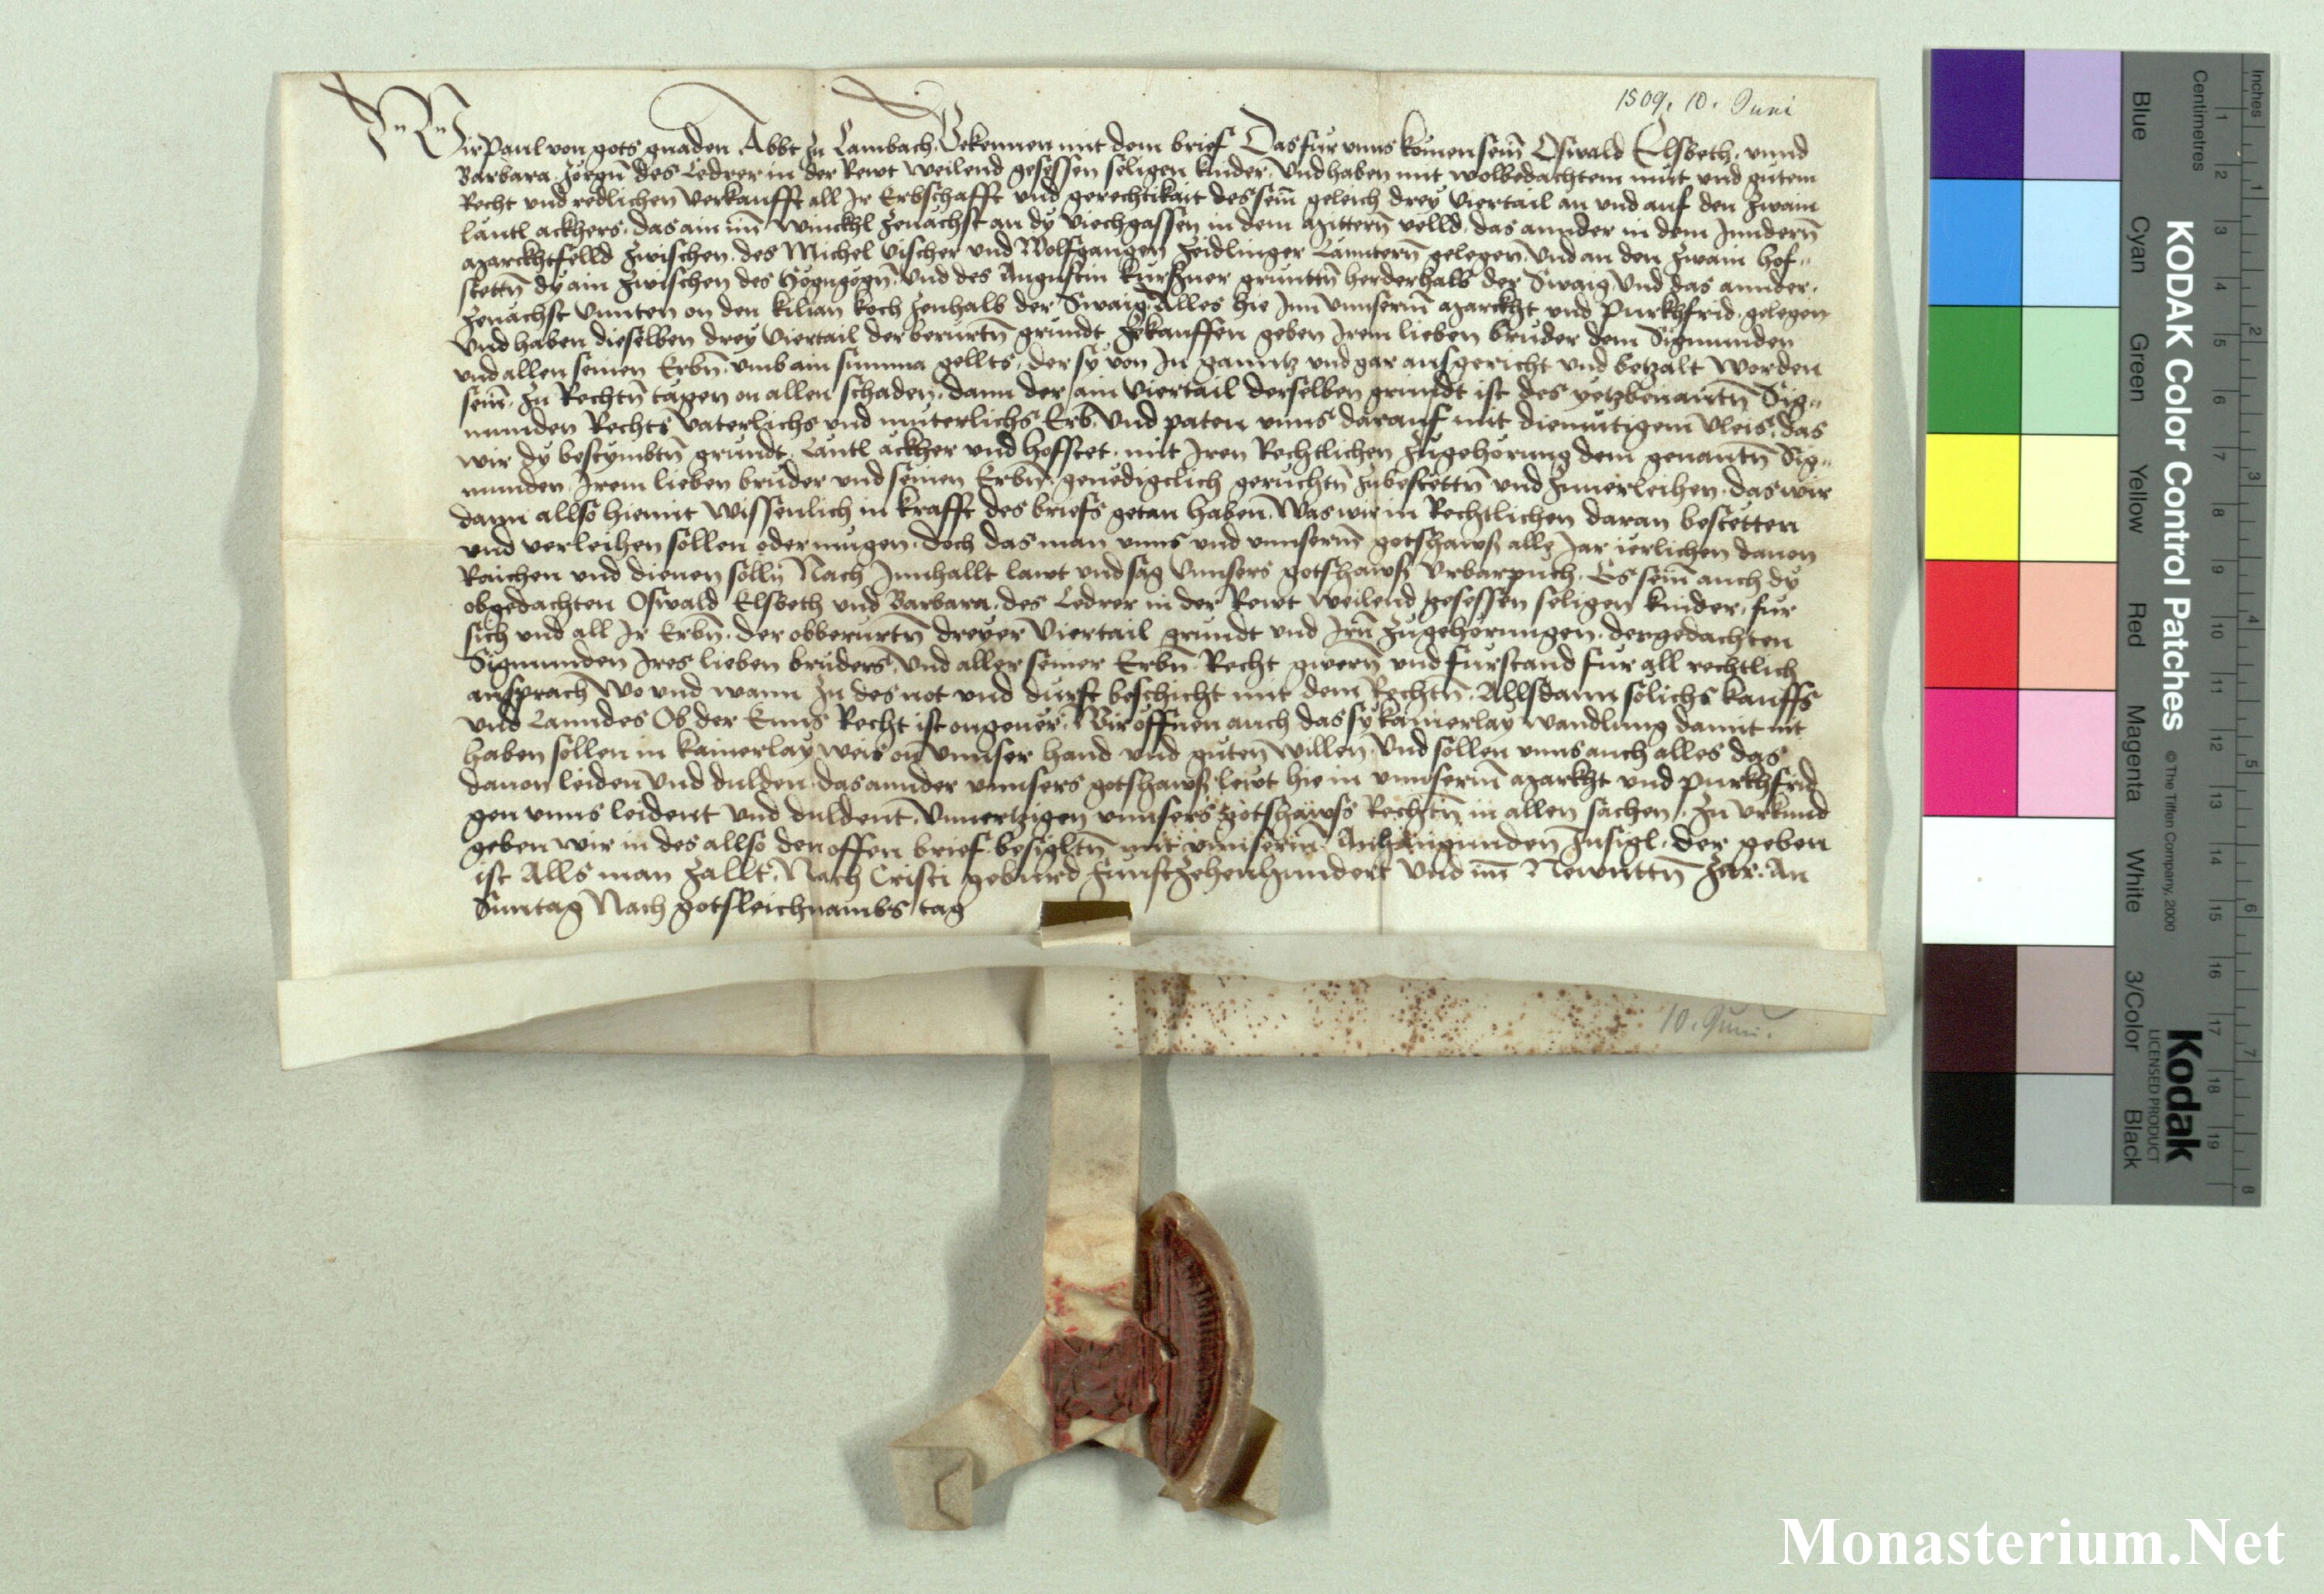 1509. 10. Juni
Wir Paul von gots gnaden Abbt zu Lambach Bekennen mit dem brief Das fur vnns komen sein Oswald Elsbeth vnnd
Barbara Jorgn des Ledrer in der Rewt weilend gesessen seligen kinder Vnd haben mit wolbedachtem mut vnd gutem
Recht vnd redlichen verkaufft all Ir Erbschafft vnd gerechtikait des sein geleich drey viertail an vnd auf den zwain
lantl ackhers das ain im winckhl zenachst an dy viechgassen in dem velld das annder in dem Inndern
Marckhtfelld zwischen des Michel vischer vnd Wolfganngen Zeidlinger Lanntern gelegen Vnd an den zwain hof„
stettn dy ain zwischen des vnd des Augustin kurszner grunttn herderhalb der Swaig Vnd das annder
zenachst vnnten on den kilian koch zenhalb der Swaig Alles hie Inn vnnserm Marckht vnd Purkhfrid gelegen
Vnd haben dieselben drey viertail der berurtn grundt zekauffen geben Irem lieben bruder dem Sigmunden
vnd allen seinen Erbn vmb ain summa gellts der sy von In ganntz vnd gar ausgericht vnd betzalt worden
sein zu Rechtn tagen on allen schaden dann der ain viertail derselben grundt ist des yetzbenantn Sig„
munden Rechts vaterlichs vnd muterlichs Erb Vnd paten vnns darauf mit diemutigem vleis das
wir dy bestymbtn grundt Lantl ackher vnd hofstet mit Iren Rechtlichen zugehorung dem genantn Sig„
munden Irem lieben bruder vnd seinen Erbn genedigclich geruchtn zubestettn vnd zuuerleihen das wir
dann allso hiemit wissenlich in krafft des briefs getan haben Was wir in Rechtlichen daran bestetten
vnd verleihen sollen oder mugen doch das man vnns vnd vnnserm gotzhawss alle Jar ierlichen dauon
Raichen vnd dienen solln Nach Innhallt lawt vnd sag vnnsers gotshawss vrbarpuch Es sein auch dy
obgedachten Oswald Elsbeth vnd Barbara des Ledrer in der Rewt weilend gesessen seligen kinder fur
sich vnd all Ir Erbn der obberurtn dreyer viertail grundt vnd Irn zugehorungen des gedachten
Sigmunden Ires lieben bruders Vnd aller seiner Erbn Recht gwern vnd furstand fur all rechtlich
ansprach Wo vnd wann In des not vnd durft beschicht mit dem Rechtn Allsdann solichs kauffs
vnd Lanndes Ob der Enns Recht ist ongeuer Wir offnen auch das sy kainerlay wandlung damit nit
haben sollen in kainerlay weis on vnnser hand vnd guten willen Vnd sollen vnns auch alles das
dauon leiden vnd dulden das annder vnnsers gotshawss lewt hie in vnnserm Markht vnd Purkhfrid
gen vnns leident vnd duldent Vnuertzigen vnnsers gotshawss Rechtn in allen sachen Zu vrkund
geben wir in des allso den offen brief besigltn mit vnnserm Anhangunden Insigl der geben
ist Alls man zallt Nach Cristi geburd Funftzehenhundert Vnd im Newnttn Jar An
Suntag Nach gotsleichnambs tag
10. Juni.
Inches
Centimetres
1 2 3 4 5 6 7 8
1 2 3 4 5 6 7 8 9 10 11 12 13 14 15 16 17 18 19
KODAK Color Control Patches © The Tiffen Company, 2000
Kodak
LICENSED PRODUCT
Blue Cyan Green Yellow Red Magenta White 3/Color Black
Monasterium.Net